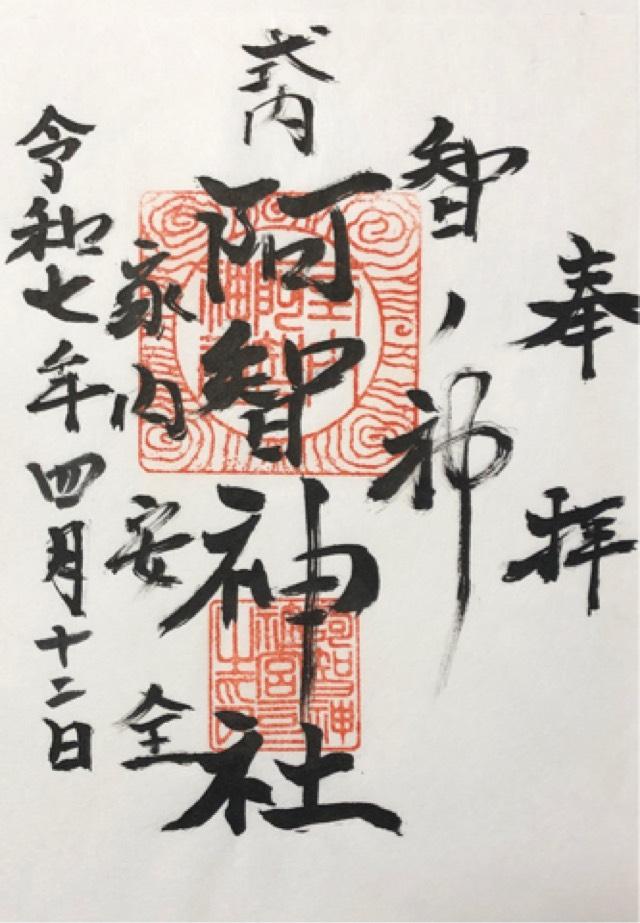 奉拝
智ノ神
式内
阿智神社
家内安全
令和七年四月十二日